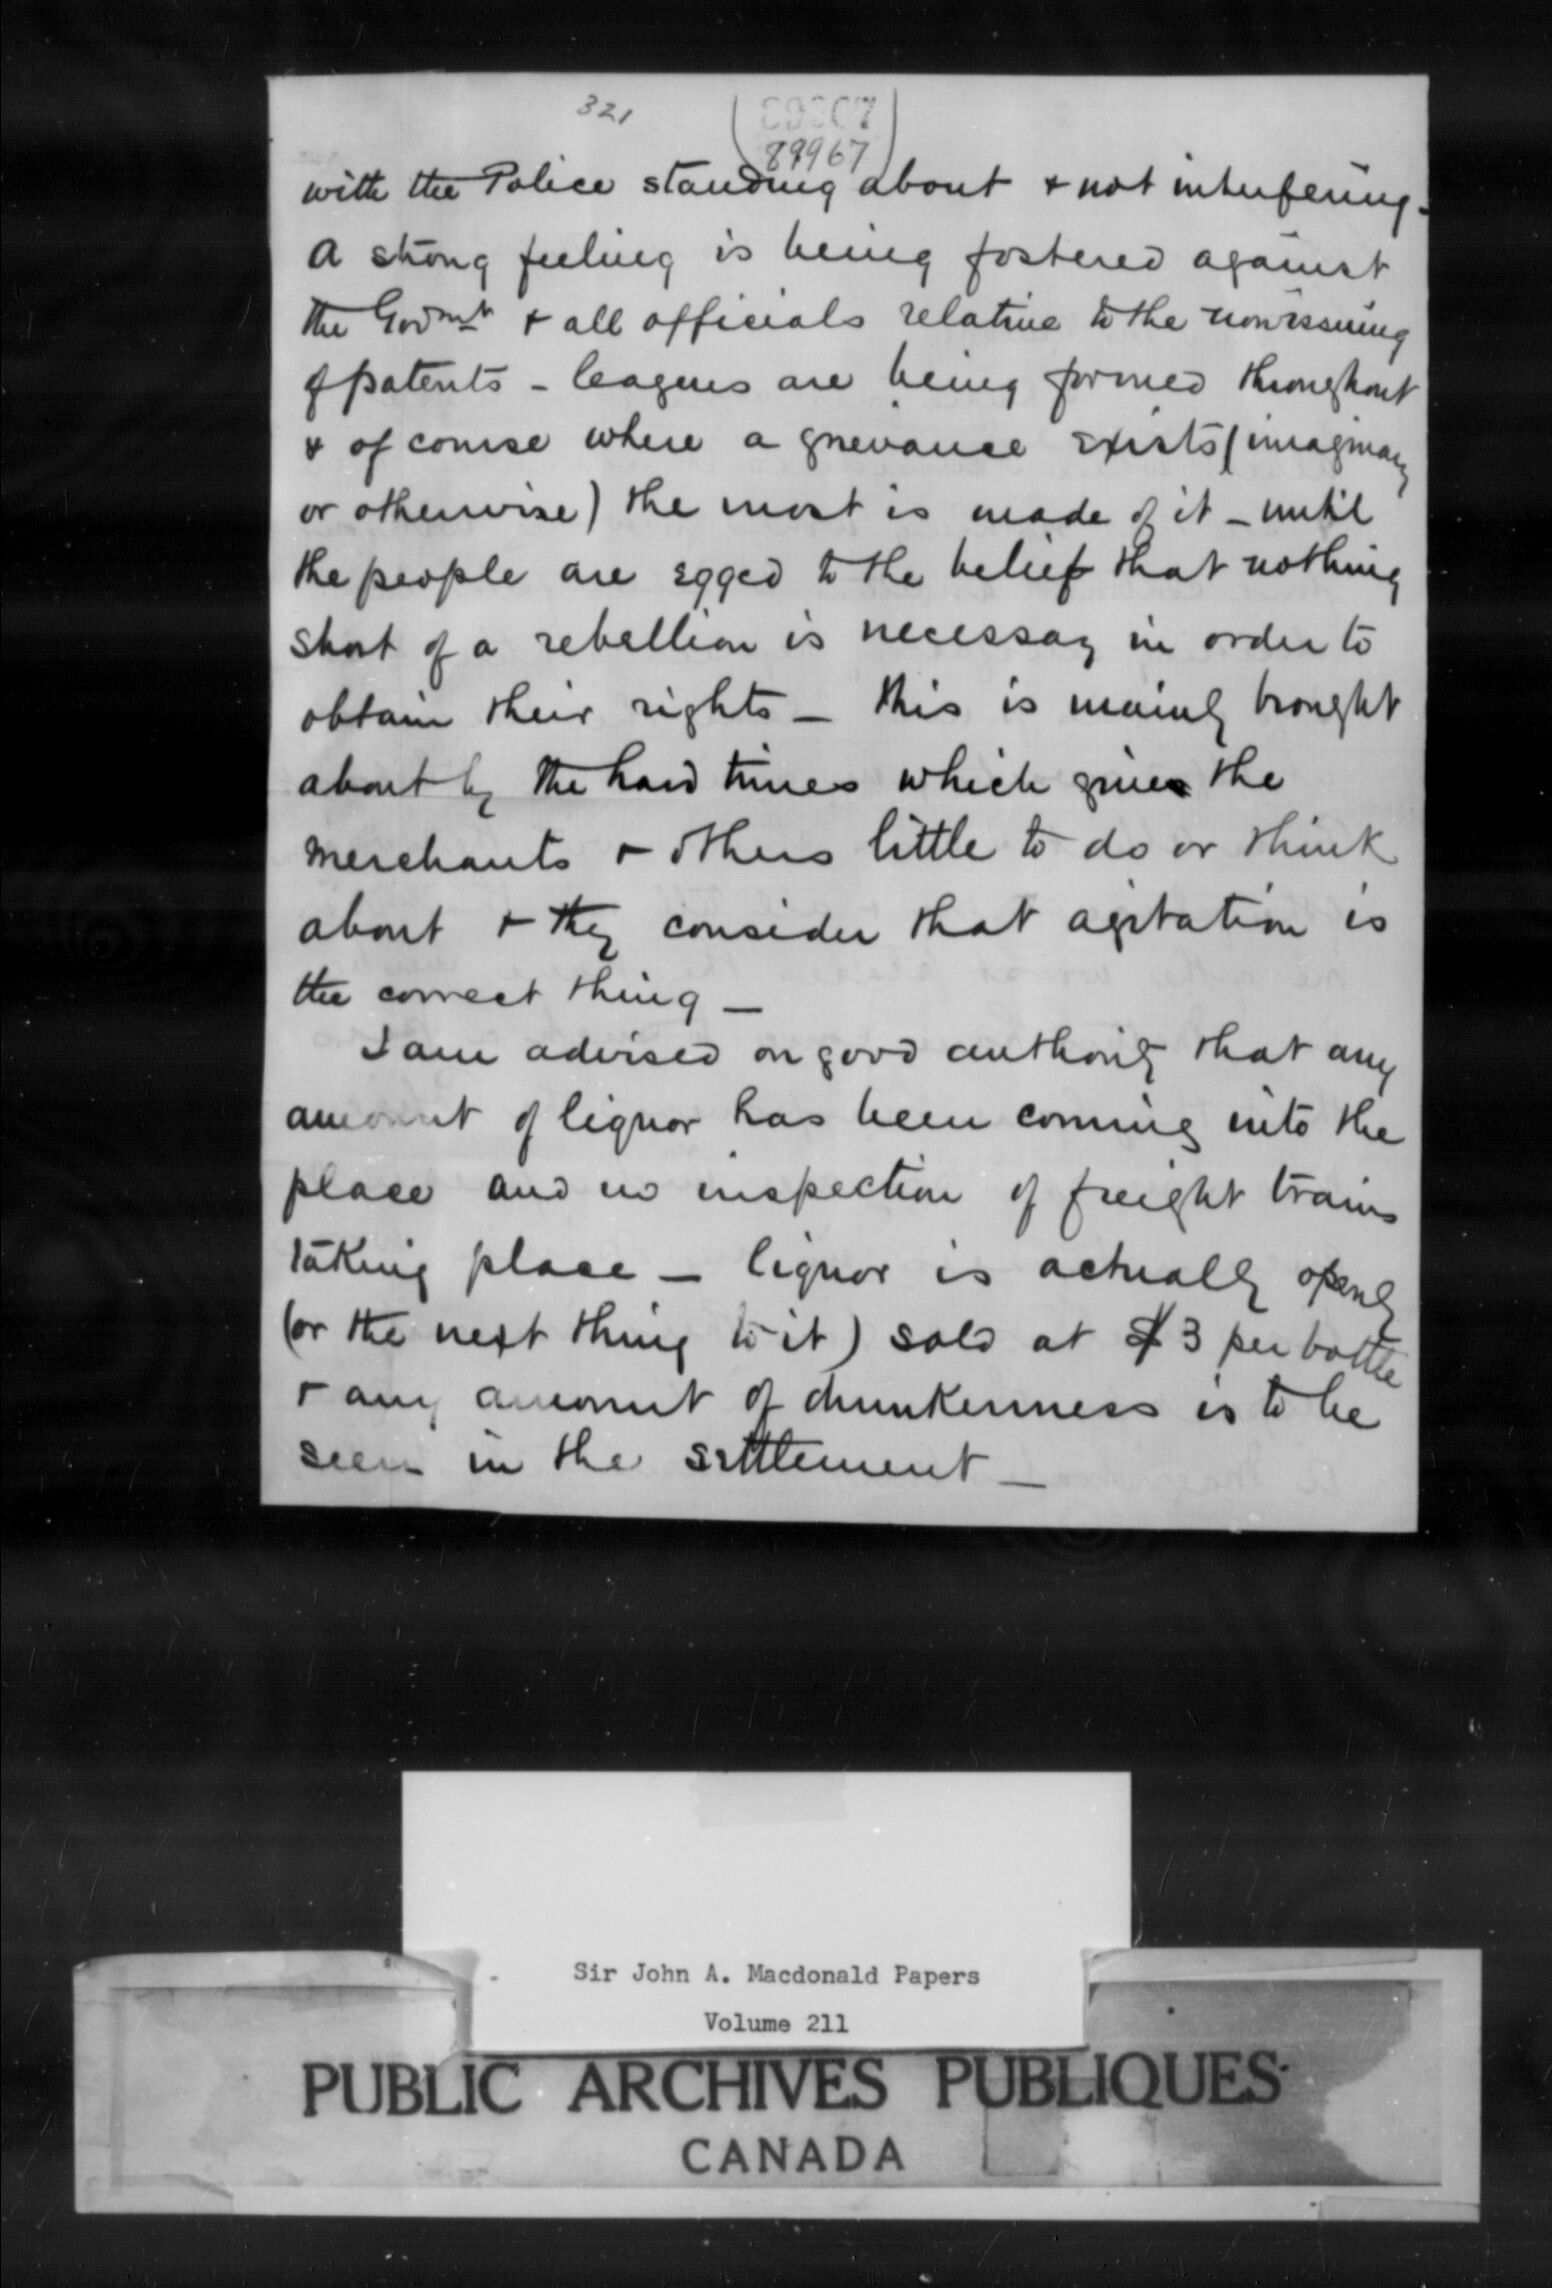 321
89967
with the Police standing about & not interfering -
A strong feeling is being fostered against
the Govmnt & all officials relative to the nonissuing
of patents - leagues are being formed throughout
& of course where a grievance exists (imaginary
or otherwise) the most is made of it - until
the people are egged to the belief that nothing
short of a rebellion is necessary in order to
obtain their rights - this is mainly brought
about by the hard times which gives the
merchants & others little to do or think
about & they consider that agitation is
the correct thing -
I am advised on good authority that any
amount of liquor has been coming into the
place and no inspection of freight trains
taking place - liquor is actually openly
(or the next thing to it) sold at $3 per bottle
& any amount of drunkenness is to be
seen in the settlement -
Sir John A. Macdonald Papers
Volume 211
PUBLIC ARCHIVES PUBLIQUES
CANADA